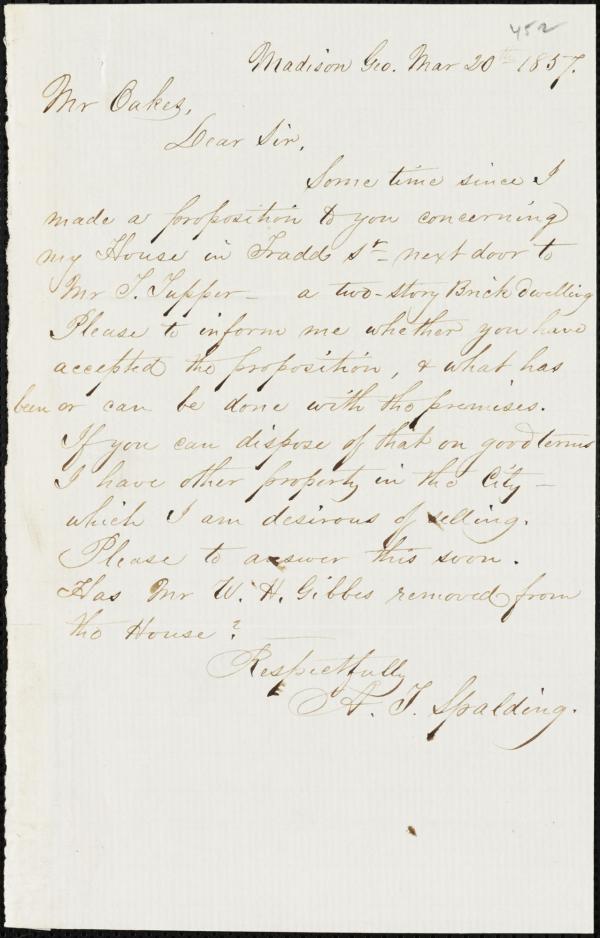 452
Madison Geo. Mar 20th 1857.
Mr Oakes,
Dear Sir,
Some time since I
made a proposition to you concerning
my House in Tradd St - next door to
Mr T. Tupper - a two-story Brick dwelling
Please to inform me whether you have
accepted the proposition, & what has
been or can be done with the premises.
If you can dispose of that on good terms
I have other property in the City -
which I am desirous of selling.
Please to answer this soon.
Has Mr W. H. Gibbes removed from
the House?
Respectfully
A. T. Spalding.